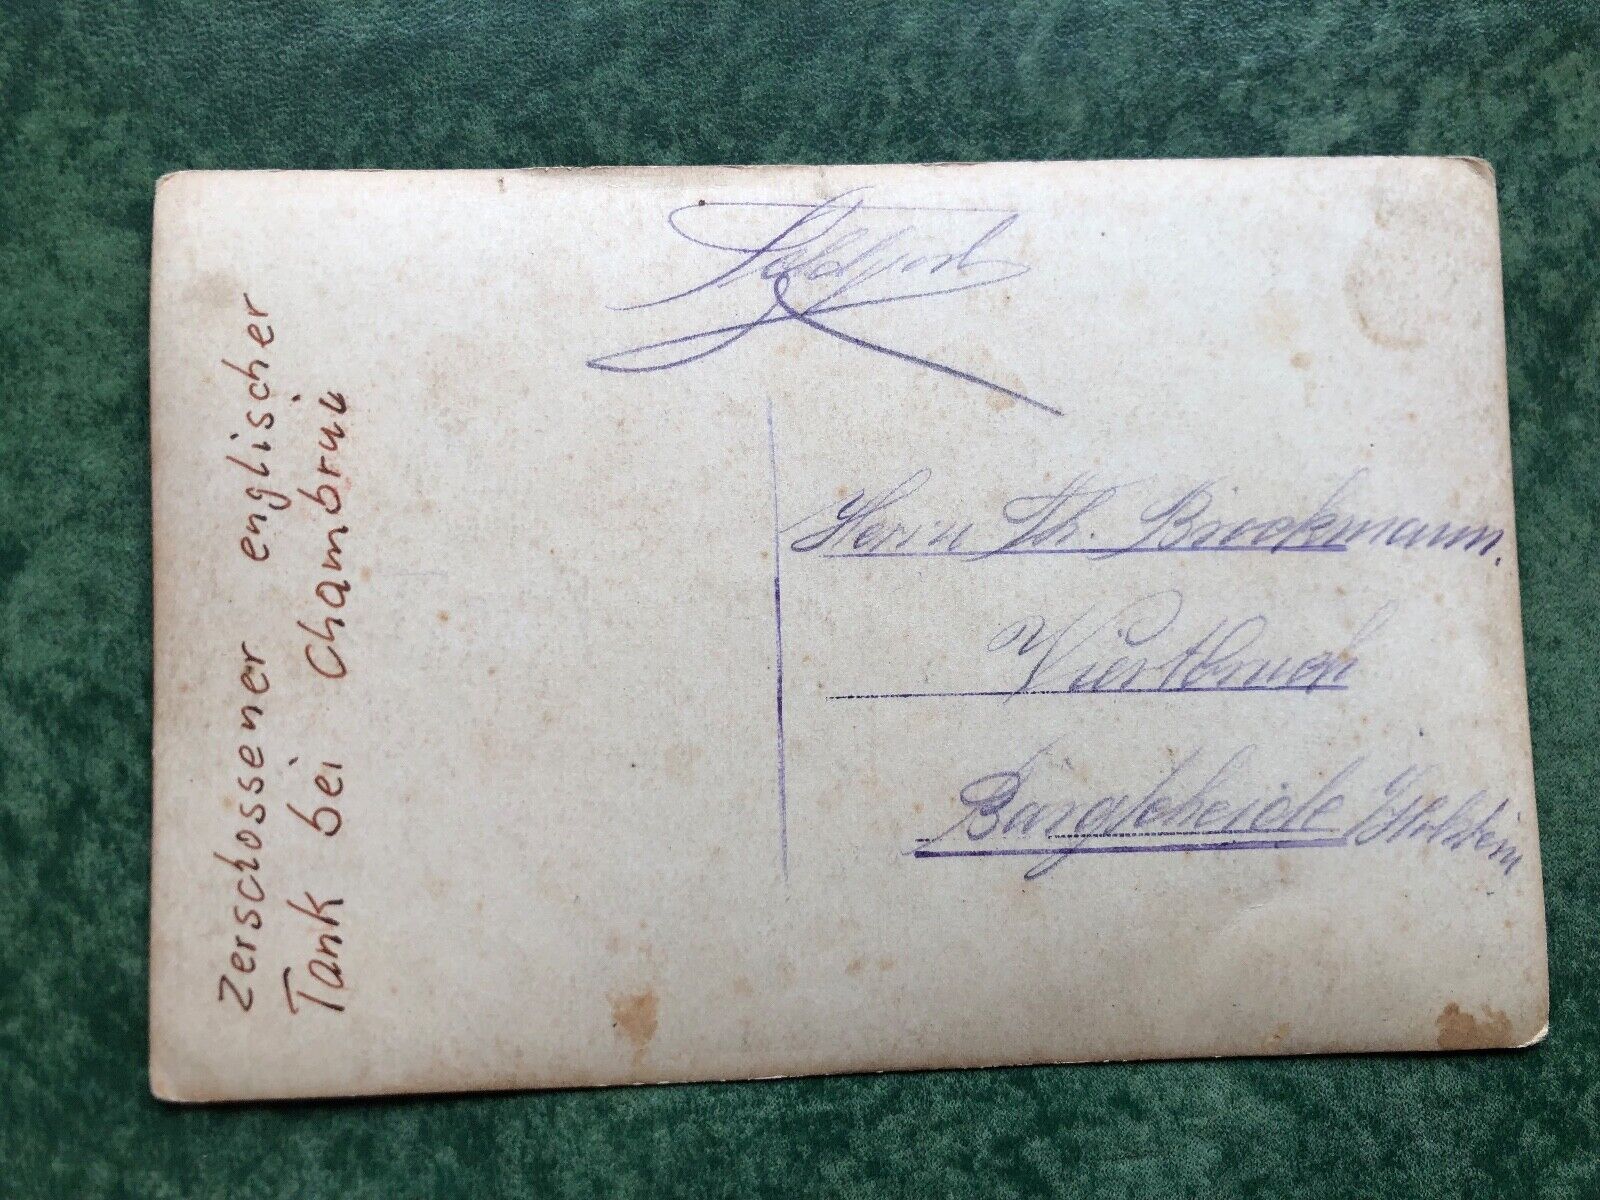 Zerschossener englischer
Tank bei Chambruu
Feldpost
Herrn Th. Brockmann.
Viertbruch
Bargteheide /Holstein